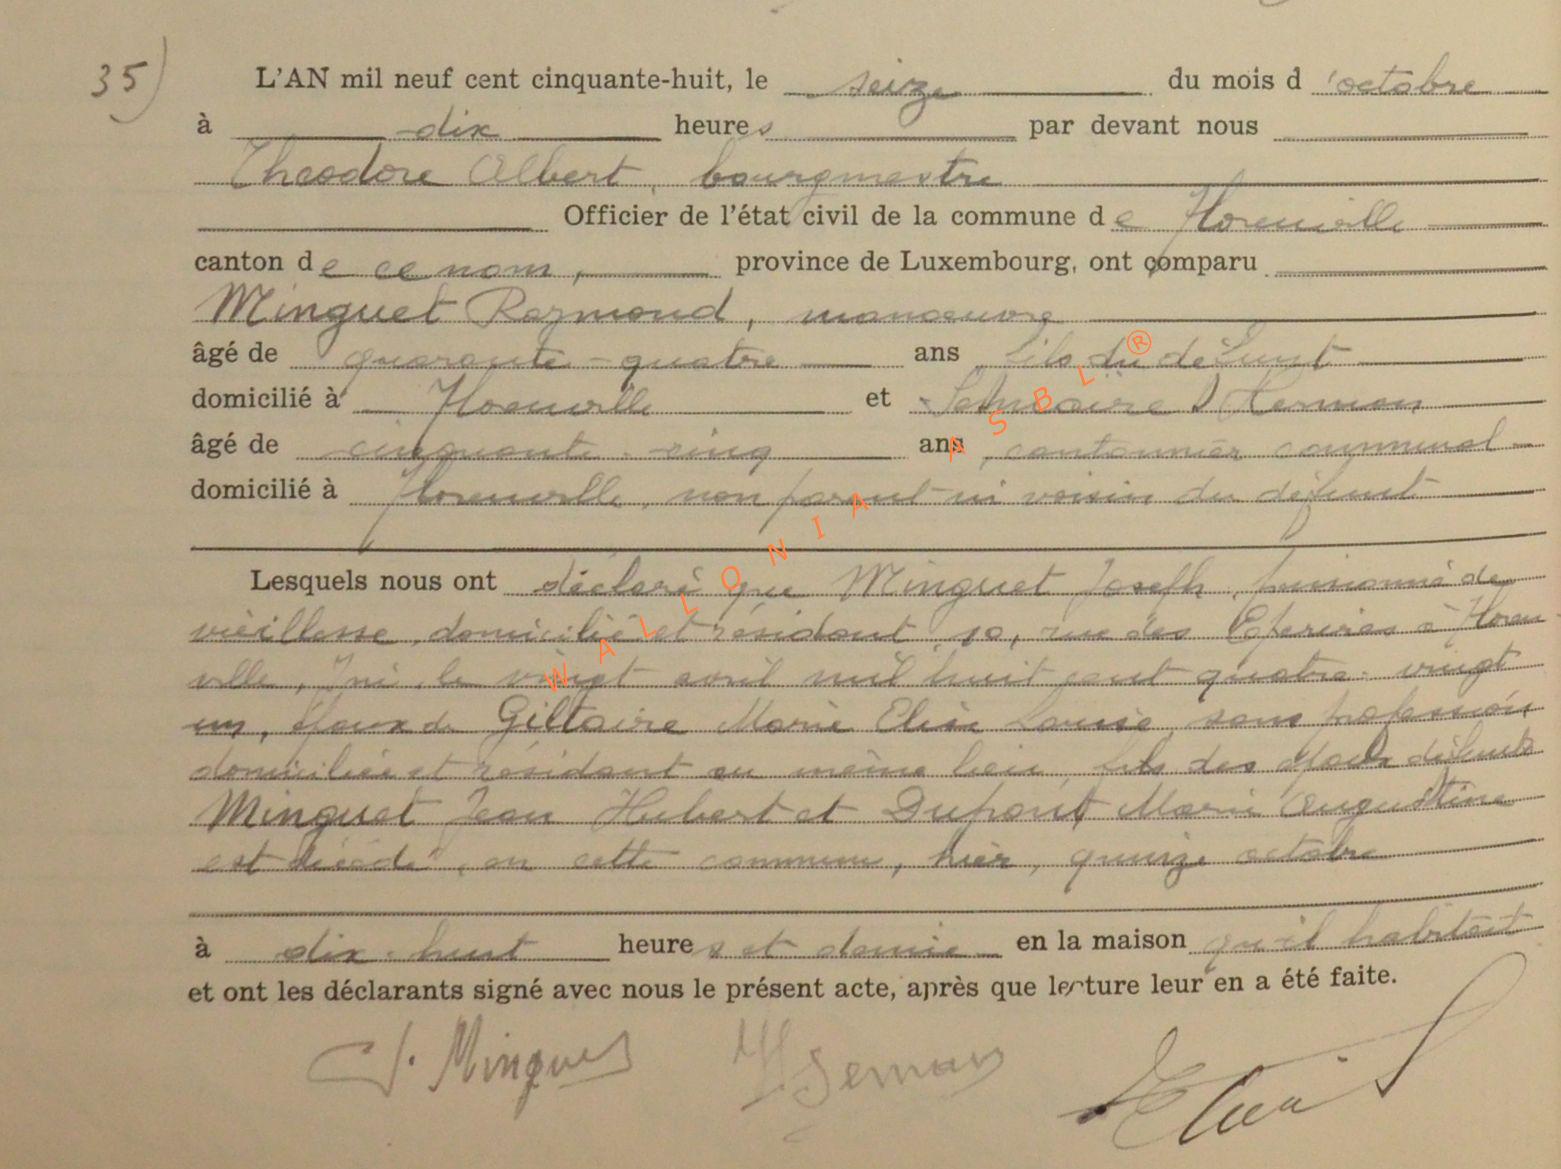 35) L'AN mil neuf cent cinquante-huit, le seize du mois d'octobre
à dix heures par devant nous
Théodore Albert, bourgmestre
Officier de l'état civil de la commune de Florenville
canton de ce nom, province de Luxembourg, ont comparu
Minguet Raymond, manoeuvre
âgé de quarante-quatre ans fils du défunt
domicilié à Florenville et
âgé de cinquante-cinq ans, cantonnier communal
domicilié à Florenville, non parent ni voisin du défunt
Lesquels nous ont déclaré que Minguet Joseph, pensionné de
vieillesse, domicilié et résidant, 10, rue des Eperires à Floren
ville, y né, le vingt avril mil huit cent quatre-vingt
un, époux de Giltaire Marie Elise Louise, sans profession
domiciliée et résidant au même lieu, fils des époux défunts
Minguet Jean Hubert et Dupont Marie Augustine
est décédé, en cette commune, hier, quinze octobre
à dix-huit heures et demie en la maison qu'il habitait
et ont les déclarants signé avec nous le présent acte, après que lecture leur en a été faite.
Minguet
WALLONIA ASBL ®